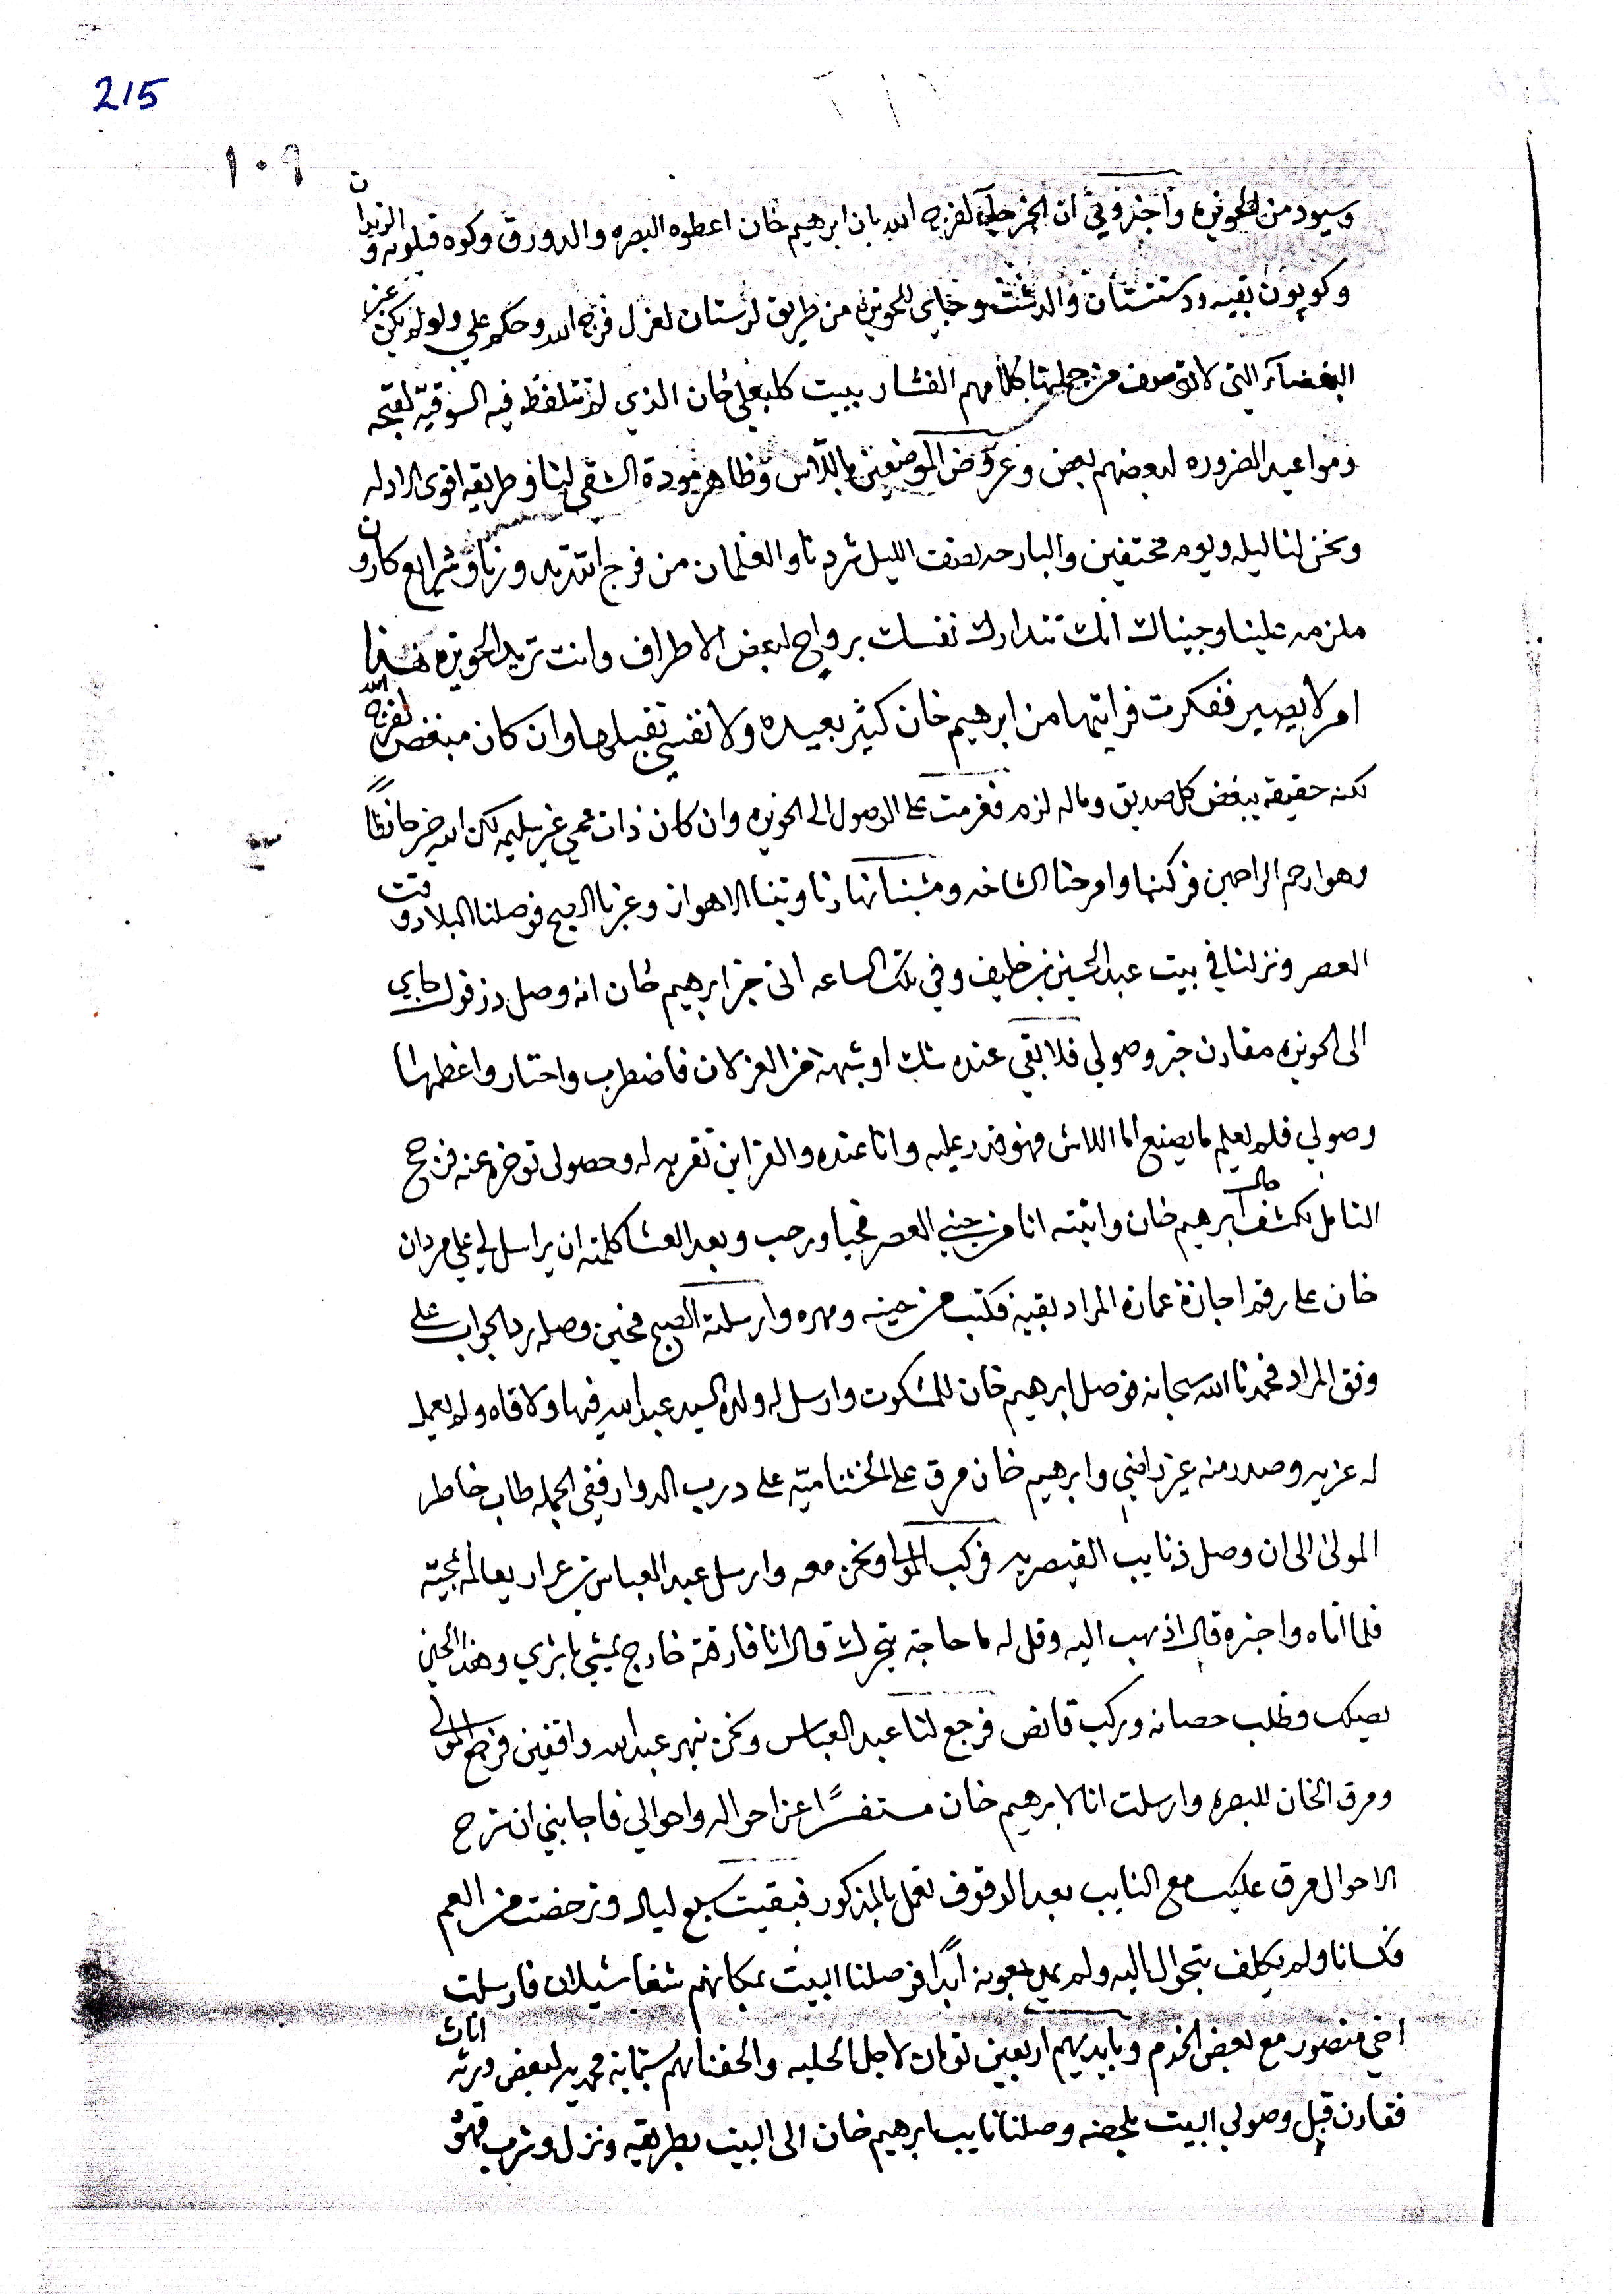 215
١٠٩
وسيود من الحويزه واخبروني ان الخبر جاء لفرج الله بان ابرهيم خان اعطوه البصره والدورق وكوه قيلويه والزيدان
وكوپون بقيه ودستستان والدشت وجاي للحويزه من طريق لرستان لعزل فرج الله وحكم علي ولو لم يكن عن
البغضاء التي لا توصف من جملتها كلامهم الفشار ببيت كلبعلي خان الذي لم تتلفظ فيه السوقيه لقبحه
ومواعيد الضروره لبعضهم بعض وعروض الموضعين بالداس وظاهر مودة الشقي لينا وطريقه اقوى الادله
ونحن لنا ليله ويوم مختفين والبارحه نصف الليل شردنا والغلمان من فرج الله تريد وزنا وشرايع كارون
ملزمه علينا وجيناك انك تتدارك نفسك برواح لبعض الاطراف وانت تريد الحويزه هذا
امر لا يصير ففكرت فرايتها من ابرهيم خان كثير بعيده ولا نفسي تقبلها وان كان مبغض لفرج الله
لكنه حقيقه يبغض كل صديق وماله لزم فعزمت على الوصول الى الحويزه وان كان ذات محمي غير سليمه لكن الله خير حافظاً
وهو ارحم الراحمين فركبنا وامرحنا الشاخه ومشينا نهارنا وتينا الاهواز وعبرنا الصبح فوصلنا البلاد وقت
العصر ونزلنا في بيت عبد الحسين بن خليف وفي تلك الساعه اتى خبر ابرهيم خان انه وصل دزفول جاي
الى الحويزه مقارن خبر وصولي فلا بقي عنده شك او شبهة من العزلان فاضطرب واحتار واعظمها
وصولي فلم يعلم ما يصنع اما اللاش فهو قدر عليه وانا عنده والقراين تقربه له وحصولي توخره عنه فرجح
التامل لكشف حال ابرهيم خان واتيته انا من جيني العصر فحيا ورحب وبعد العشا كلمته ان يراسل لي علي مردان
خان على رقم اجازة عمارة المراد بقية فكتب من حينه ومهره وارسلته الصبح فحين وصله رد الجواب على
وفق المراد فحمدنا الله سبحانه فوصل ابرهيم خان للمشكوت وارسل له ولده السيد عبد الله فيها ولاقاه ولم يعمل
له عزيمه وصدر منه غير راضي وابرهيم خان مرق على الخشناميّه على درب الدوار ففي الجمله طاب خاطر
المولى الى ان وصل ذنايب القيصريه فركب المولى ونحن معه وارسل عبد العباس بن عرار يعالمه بمجيّه
فلما اتاه واخبره قال اذهب اليه وقل له ما حاجة يتحرك قال انا فارقته خارج يمشي بابزي وهذا الحين
يصلك وطلب حصانه وركب قانص فرجع لنا عبد العباس ونحن نهر عبد الله واقفين فرجع المولى
ومرق الخان للبصره وارسلت انا لابرهيم خان مستفسرًا عن احواله واحوالي فاجابني ان شرح
الاحوال مرق عليك مع النايب بعد الوقوف تعمل بالمذكور فبقيت سبع ليال وترخصت من العم
فكسانا ولم يكلف بتحوال اليه ولم يمل بعونه ابدًا فوصلنا البيت بمكانهم شغاب شيلان فارسلت
اخي منصور مع بعض الخدم وبايديهم اربعين تومان لاجل الحليه والحقناهم بستمايه محمديه لبعض اثاث ورثه
فقارن قبل وصولي البيت بلحضه وصلنا نايب ابرهيم خان الى البيت بطريقه ونزل وشرب قهوة